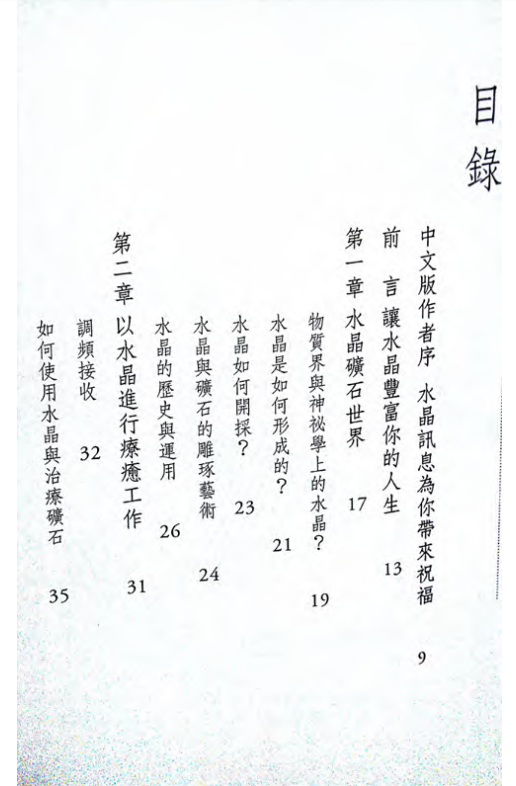 目錄
中文版作者序 水晶訊息為你帶來祝福 9
前 言 讓水晶豐富你的人生 13
第一章 水晶礦石世界 17
物質界與神祕學上的水晶？ 19
水晶是如何形成的？ 21
水晶如何開採？ 23
水晶與礦石的雕琢藝術 24
水晶的歷史與運用 26
第二章 以水晶進行療癒工作 31
調頻接收 32
如何使用水晶與治療礦石 35